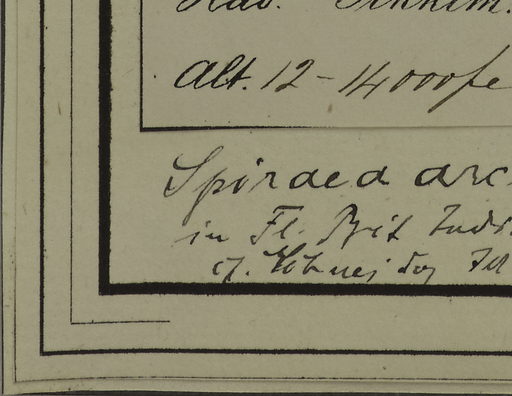 Hab. Sikkim.
Alt. 12-14000 fe
Spiraea arc
in Fl. Brit Ind.
cf.